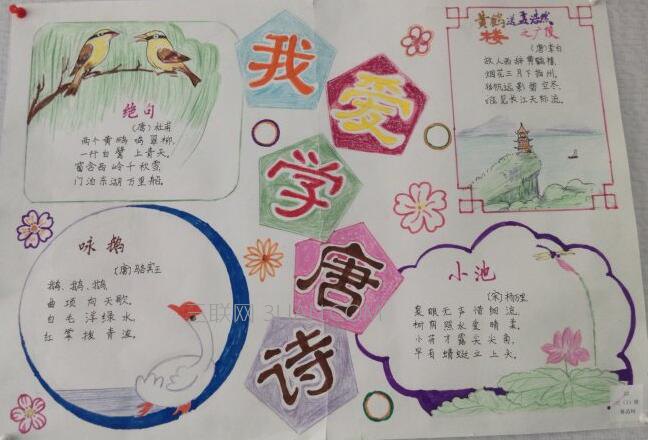 我
爱
学
唐
诗
绝句
(唐)杜甫
两个黄鹂鸣翠柳,
一行白鹭上青天,
窗含西岭千秋雪,
门泊东湖万里船。
黄鹤送孟浩然
楼之广陵
(唐)李白
故人西辞黄鹤楼,
烟花三月下扬州。
孤帆远影碧空尽,
唯见长江天际流。
咏鹅
(唐)骆宾王
鹅、鹅、鹅
曲项向天歌,
白毛浮绿水,
红掌拨青波。
小池
(宋)杨万里
泉眼无声惜细流,
树阴照水爱晴柔。
小荷才露尖尖角,
早有蜻蜓立上头。
三联网 3LIAN.COM